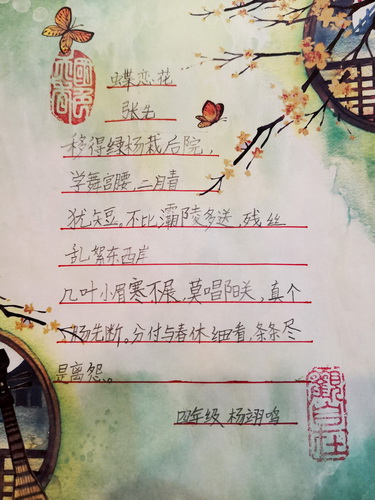 国色天香
蝶恋花
张先
移得绿杨栽后院,
学舞宫腰,二月青
犹短。不比灞陵多送,残丝
乱絮东西岸
几叶小眉寒不展,莫唱阳关,真个
肠先断。分付与春休细看,条条尽
是离怨。
四年级 杨翊鸣